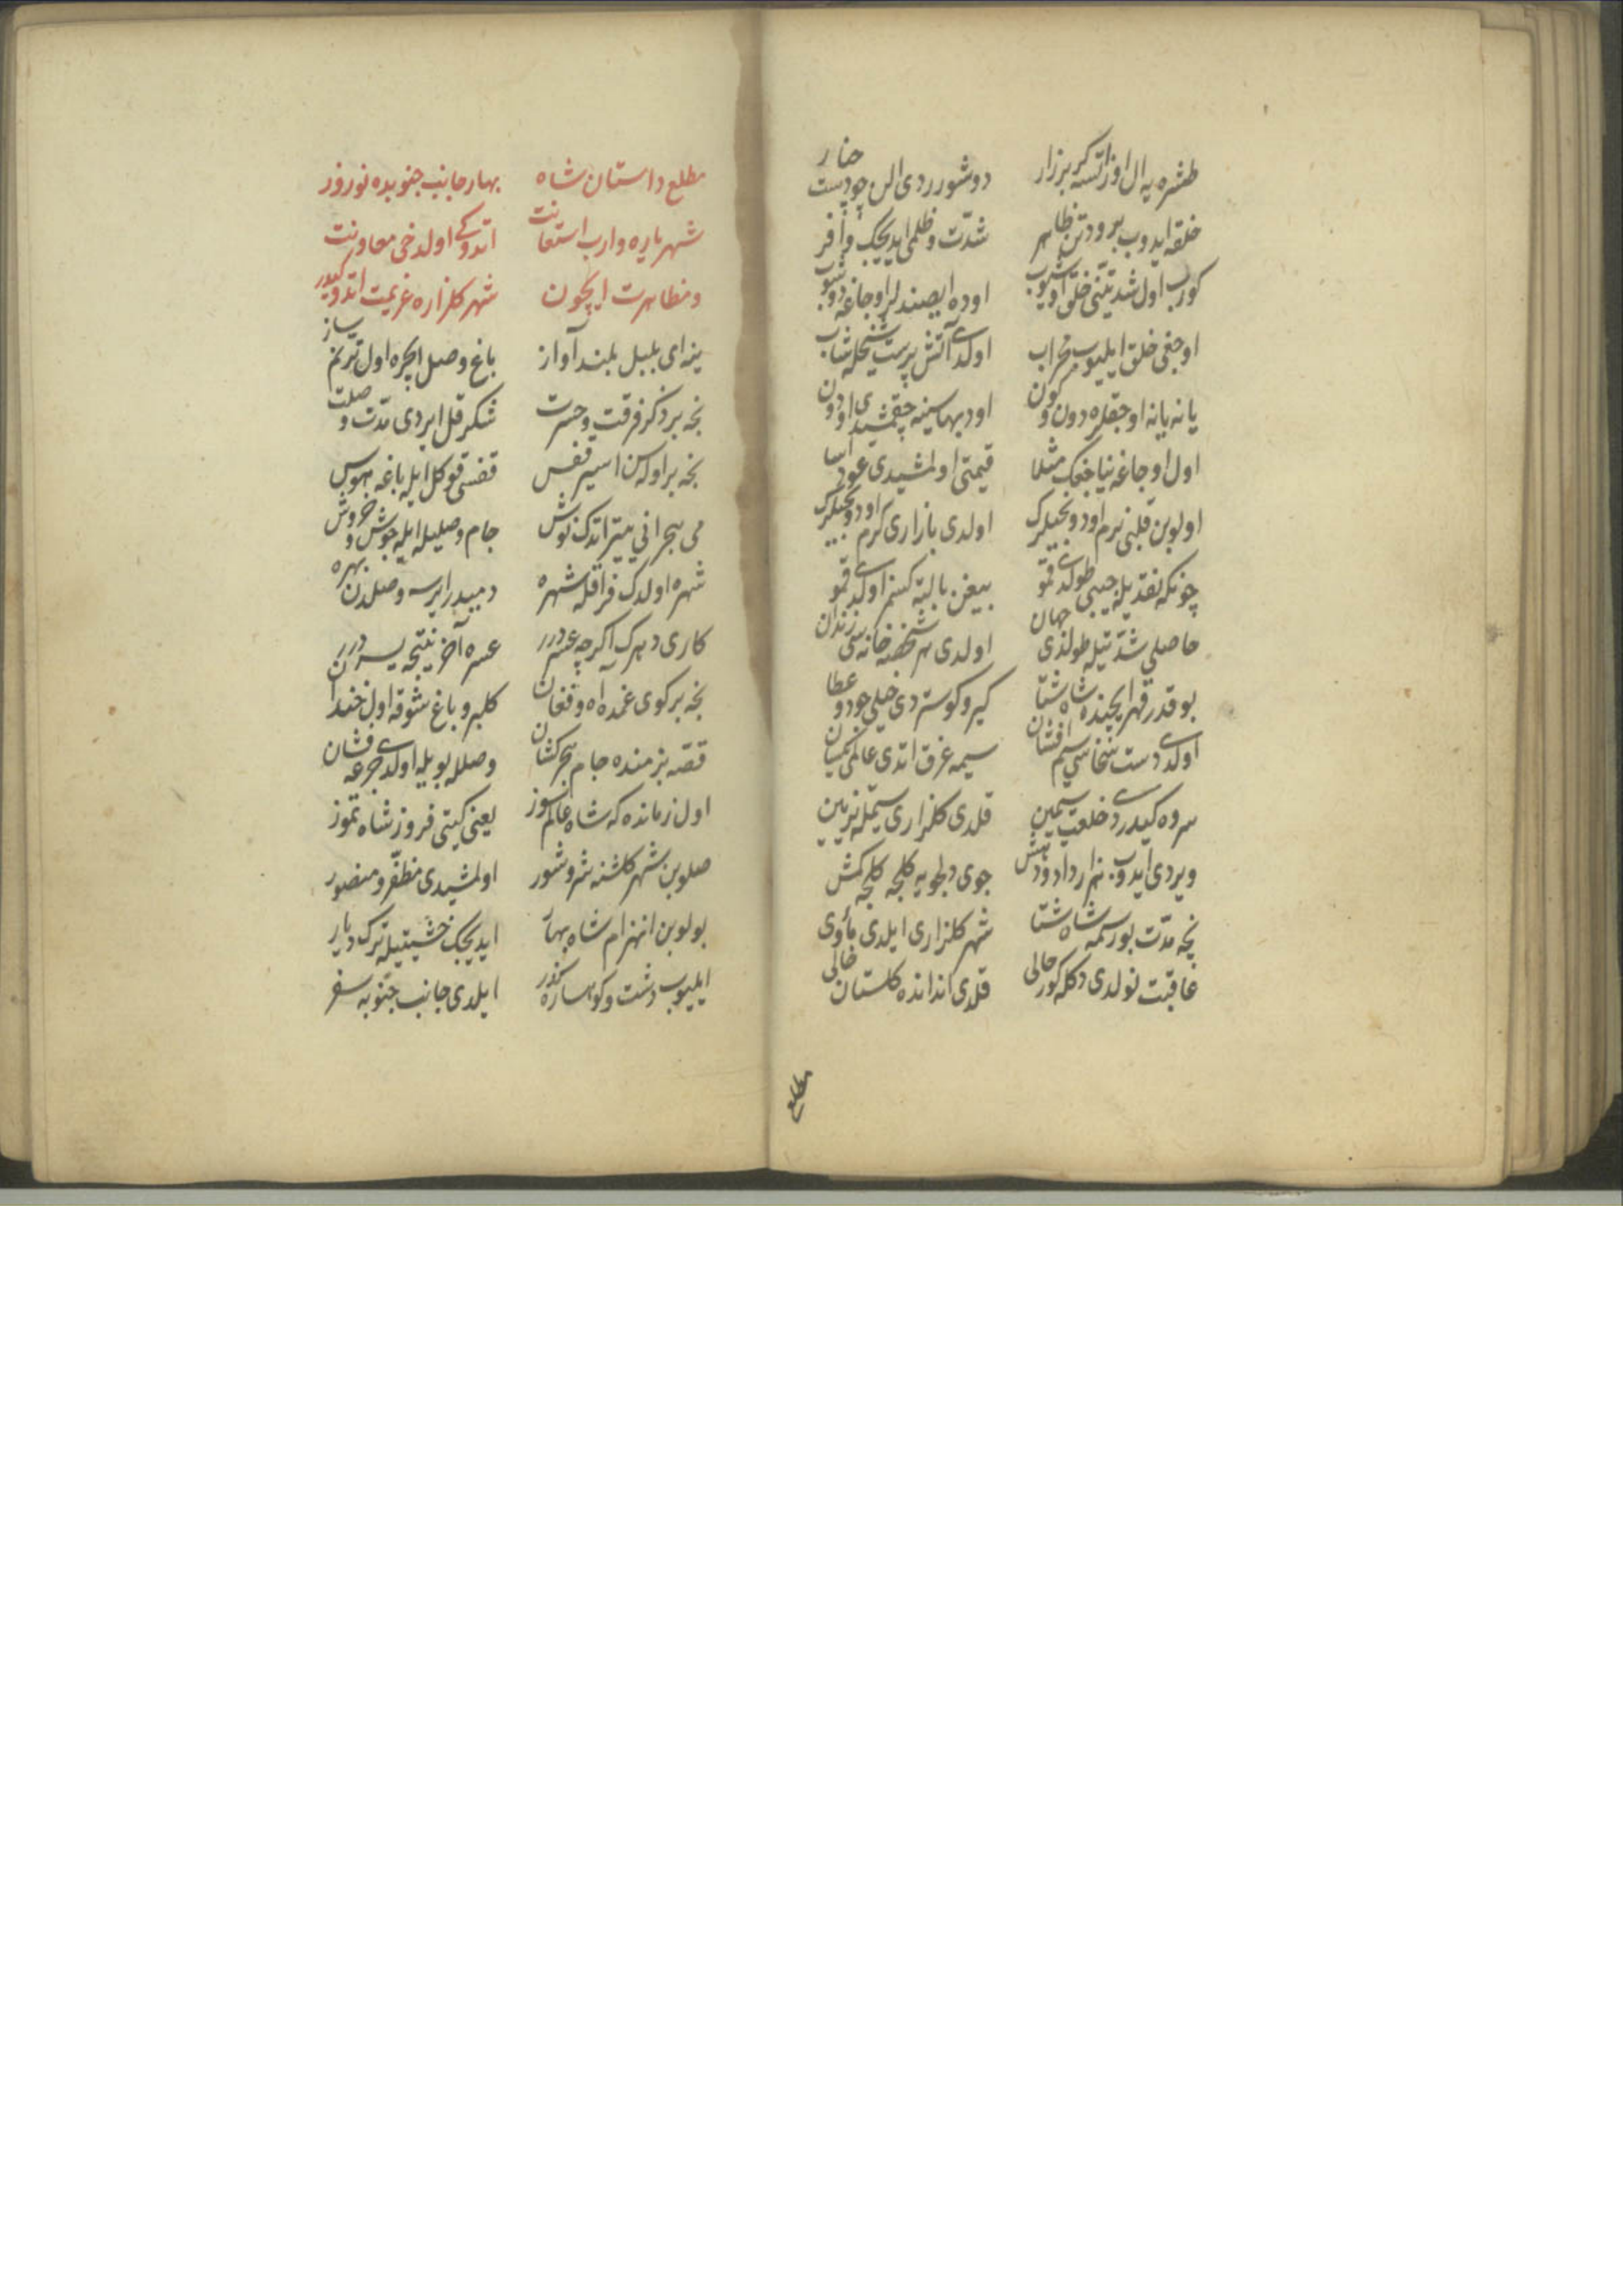 طشره یه ال اوزاتسه کر بزار دوشورردی الن چو دست چنار
خلقه ایدوب برودتن ظاهر شدت و ظلمی ایدیجک وافر
کورب اول شدتنی خلق اویشوب اوده ایصندلر اوجاغه دوشوب
اوجغی خلق ایلیوب محراب اولدی آتش پرست شیخله شاب
یانه یانه اوجقلره دون و کون اود بهاسینه چقمشیدی اودون
اول اوجاغه یناجغک مثلا قیمتی اولمشیدی عود آسا
اولوبن قلبی نرم اودونجیلرک اولدی بازاری کرم اودونجیلرک
چونکه نقدیله جیبی طولدی قمو
حاصلی شدتیله طولدی جهان اولدی هر خانه سی زندان
بو قدر قهر ایچنده شاه شتا کیرو کوستردی خیلی جود و عطا
اولدی دست سخاسی سیم افشان سیمه غرق اتدی عالمی یکسان
سروه کیدردی خلعت سیمین قلدی کلزاری سیمله تزیین
ویردی ایدوب هزار داد و دهش جوی دلجویه کلجه کلجه کمش
نچه مدت بو رسمه شاه شتا شهر کلزاری ایلدی مأوی
عاقبت نولدی دکله کور حالی قلدی اندن ده کلستان خالی
مطلع
مطلع داستان شاه بهار جانب جنوبده نوروز
شهریاره وارب استعانت اتدوکی اولدخی معاونت
و مظاهرت ایچون شهر کلزاره عزیمت اتدوکیدر
ینه ای بلبل بلند آواز باغ وصل ایچره اول ترنم ساز
نچه بر ذکر فرقت و حسرت شکر قل ایردی مدت وصلت
نچه بر اوله سن اسیر قفس قفسی قو کل ایله باغه هوس
می هجرانی یتر اتدک نوش جام وصلیله ایله جوش و خروش
شهره اولدک فراقله شهره دمیدر ایرسه وصلدن بهره
کاری دهرک اکرچه عسردر عسره آخر نتیجه یسردر
نچه بر کوی غمده آه و فغان کلبرو باغ شوقه اول خندان
قصه بزمنده جام هجر کشان وصلله بویله اولدی جرعه فشان
اول زمانده که شاه عالم سوز یعنی کیتی فروز شاه تموز
صلوبن شهر کلشنه شر و شور اولمشیدی مظفر و منصور
بولوبن انهزام شاه بهار ایدیجک خشیتیله ترک دیار
ایلیوب دشت و کوهساره کذر ایلدی جانب جنوبه سفر